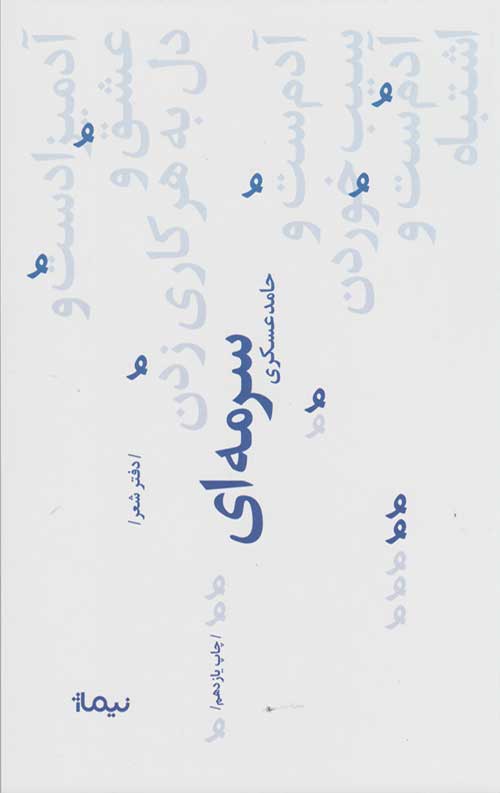 آدمیزادست و
عشق و
دل به هر کاری زدن
آدم ست و
سیب خوردن
آدم ست و
اشتباه
حامد عسکری
سرمه‌ای
/دفتر شعر/
/چاپ یازدهم/
نیماژ